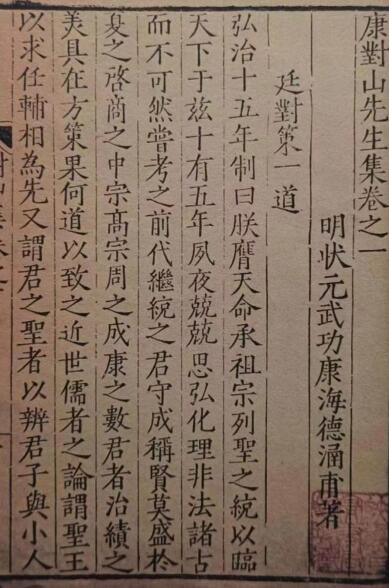 康對山先生集卷之一
明狀元武功康海德涵甫著
廷對策一道
弘治十五年制曰朕膺天命承祖宗列聖之統以臨
天下于兹十有五年夙夜兢兢思弘化理非法諸古
而不可然嘗考之前代繼統之君守成稱賢莫盛於
夏之啓商之中宗高宗周之成康之數君者治績之
美具在方策果何道以致之近世儒者之論謂聖王
以求任輔相為先又謂君之聖者以辨君子與小人